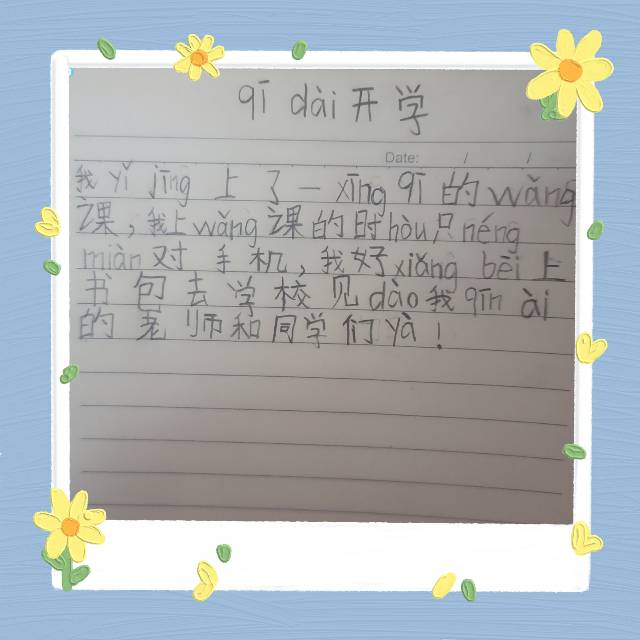 qī dài开学
Date: / /
我yǐ jīng上了一xīng qī的wǎng
课，我上wǎng课的时hòu只néng
miàn对手机，我好xiǎng bēi上
书包去学校见dào我qīn ài
的老师和同学们yà！